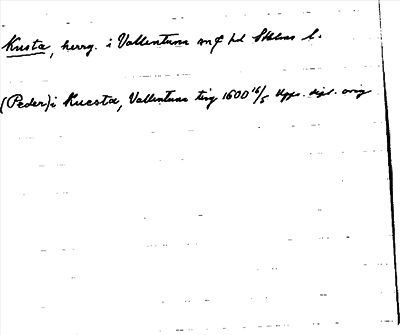 Kusta, herrg. i Vallentuna sn o hd Sthlms l.
(Peder) i Kuesta, Vallentuna ting 1600 16/5 Upps. dipl. orig